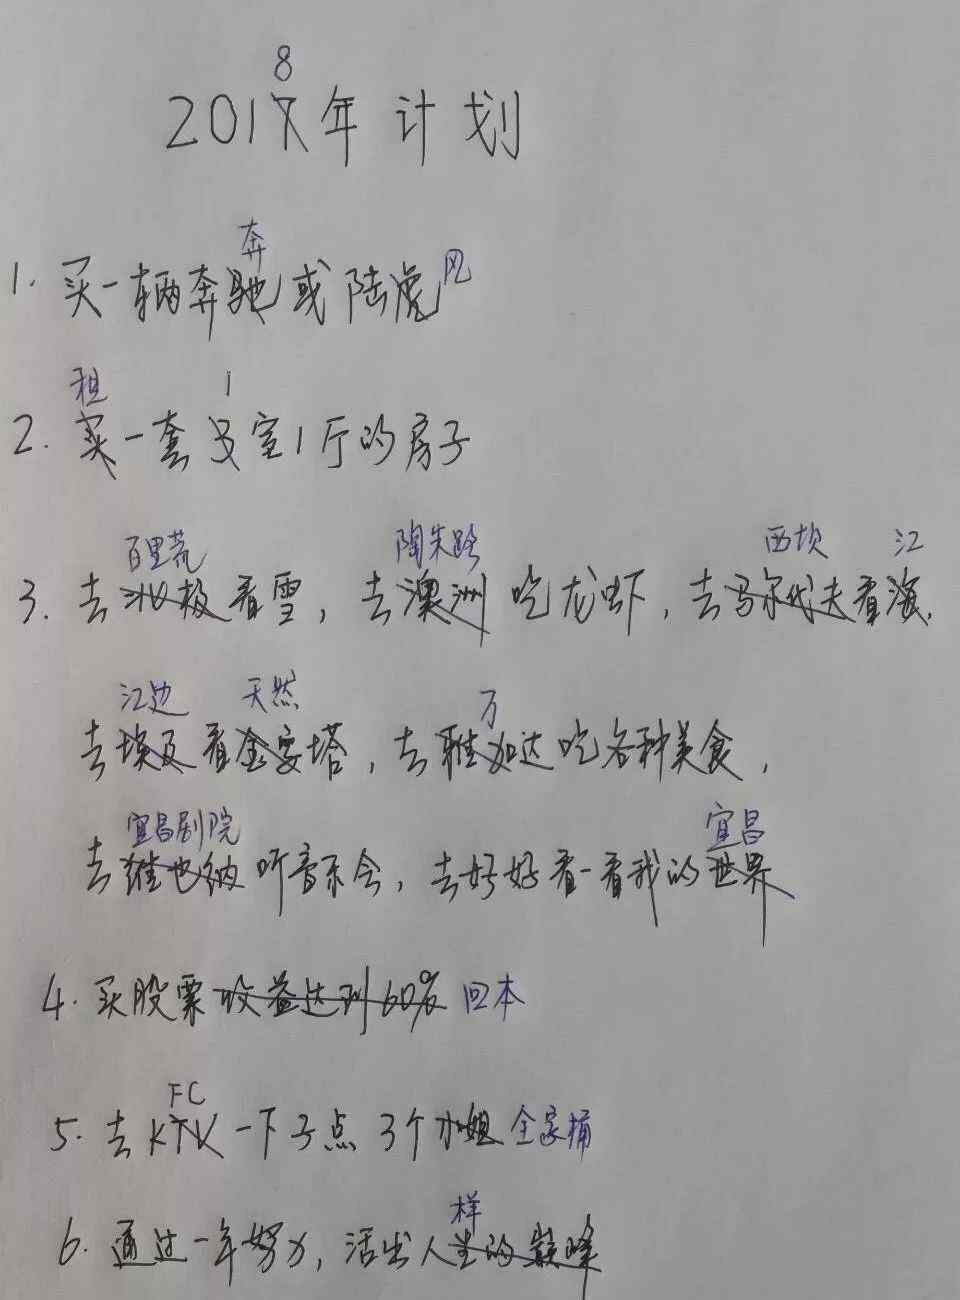 8
2017年计划
奔
1. 买一辆奔驰或陆虎风
租 1
2. 买一套3室1厅的房子
百里荒 陶朱路 西坝 江
3. 去北极看雪，去澳洲吃龙虾，去马尔代夫看海，
江边 天然 万
去埃及看金字塔，去雅加达吃各种美食，
宜昌剧院 宜昌
去维也纳听音乐会，去好好看一看我的世界
4. 买股票收益达到60% 回本
FC
5. 去KTV一下子点3个小姐全家桶
样
6. 通过一年努力，活出人生的巅峰